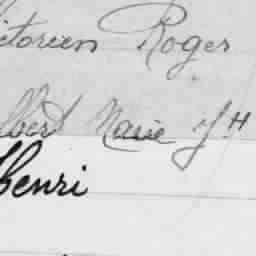 ctorien Roger
lbert Marie J H
Henri